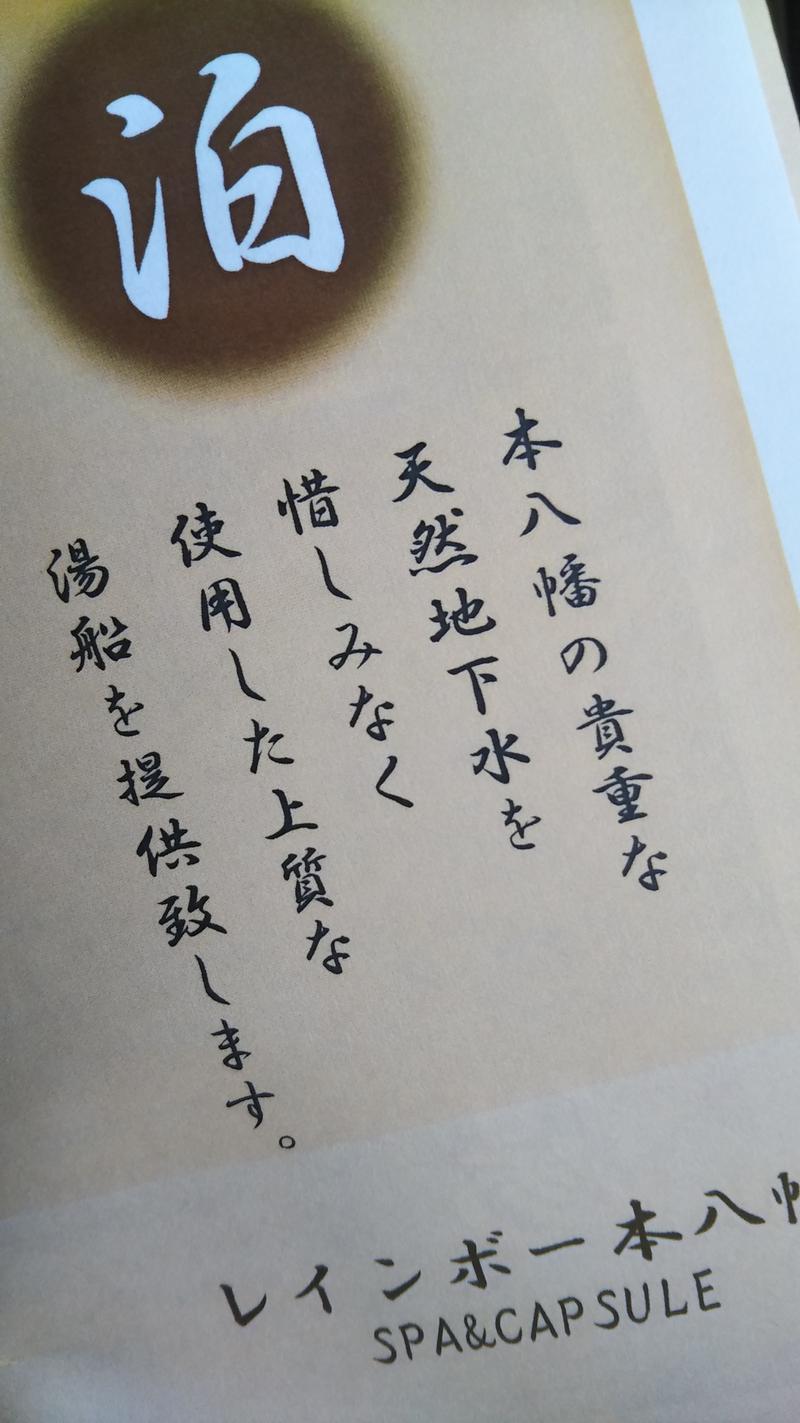 泊
本八幡の貴重な
天然地下水を
惜しみなく
使用した上質な
湯船を提供致します。
レインボー本八幡
SPA&CAPSULE